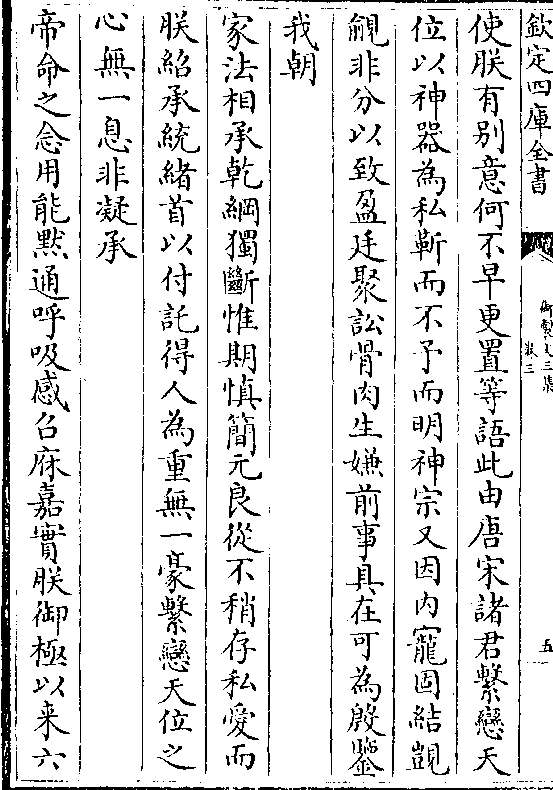 欽定四庫全書
御製文三集
卷三
五
使朕有别意何不早更置等語此由唐宋諸君繫戀天
位以神器為私靳而不予而明神宗又因内寵固結覬
覦非分以致盈廷聚訟骨肉生嫌前事具在可為殷鑒
我朝
家法相承乾綱獨斷惟期慎簡元良從不稍存私愛而
朕紹承統緒首以付託得人為重無一毫繫戀天位之
心無一息非凝承
帝命之念用能黙通呼吸感召庥嘉實朕御極以来六